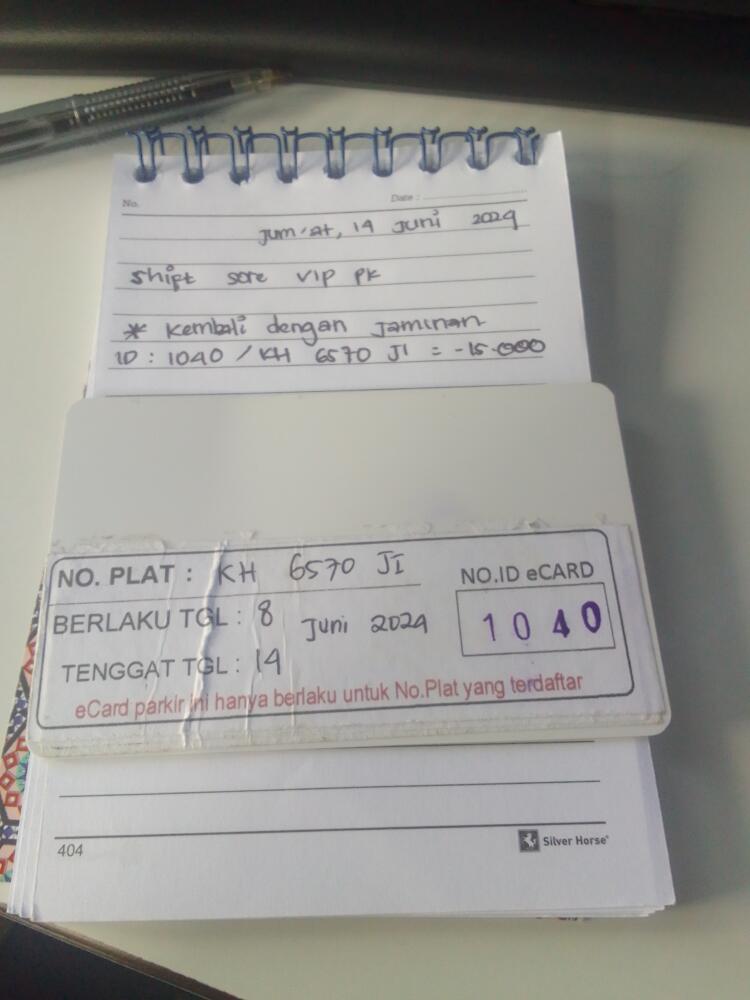 No.
Date :
Jum'at, 14 Juni 2024
shift sore VIP PK
* Kembali dengan Jaminan
ID : 1040 / KH 6570 JI = -15.000
NO. PLAT : KH 6570 JI
NO.ID eCARD
BERLAKU TGL : 8 Juni 2024
1040
TENGGAT TGL : 14
eCard parkir ini hanya berlaku untuk No.Plat yang terdaftar
404
Silver Horse